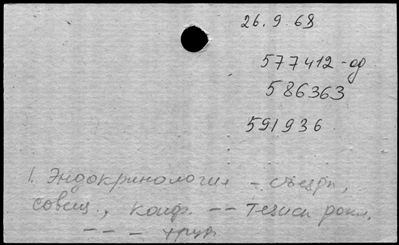 26.9.68
577412-од
586363
591936
1. Эндокринология - съезды,
совещ., конф. -- Тезисы докл.
-- - труды